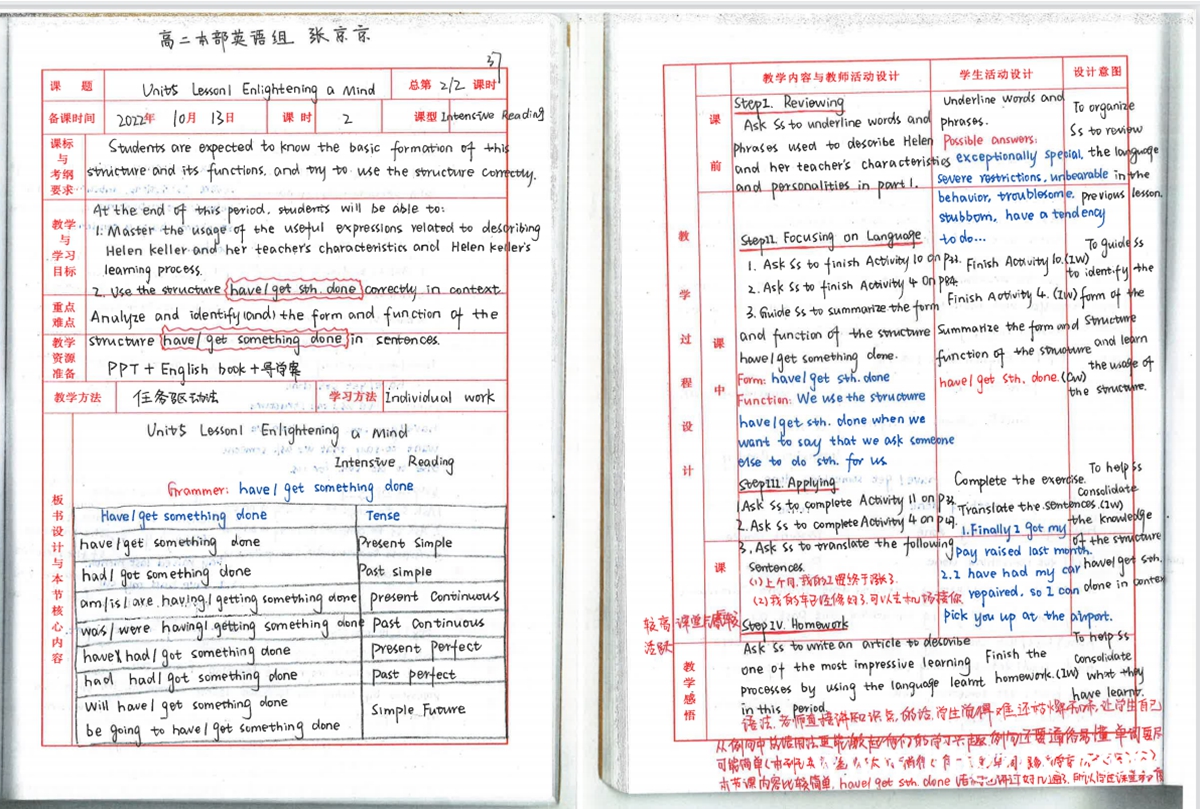 高二本部英语组 张京京
37
课 题 Unit5 Lesson1 Enlightening a Mind 总第 2/2 课时
备课时间 2022年 10月 13日 课时 2 课型 Intensive Reading
课标与考纲要求
Students are expected to know the basic formation of this
structure and its functions, and try to use the structure correctly.
教学与学习目标
At the end of this period, students will be able to:
1. Master the usage of the useful expressions related to describing
Helen Keller and her teacher's characteristics and Helen Keller's
learning process.
2. Use the structure have/get sth. done correctly in context.
重点难点
Analyze and identify (and) the form and function of the
structure have/get something done in sentences.
教学资源准备
PPT + English book + 导学案
教学方法 任务驱动法 学习方法 Individual work
板书设计与本节核心内容
Unit5 Lesson1 Enlightening a Mind
Intensive Reading
Grammer: have/get something done
Have/get something done Tense
have/get something done Present Simple
had/got something done Past simple
am/is/are having/getting something done present Continuous
was/were having/getting something done Past Continuous
have had/got something done Present Perfect
had had/got something done Past perfect
Will have/get something done
be going to have/get something done
Simple Future
教学内容与教师活动设计 学生活动设计 设计意图
教学过程设计
课前
Step1. Reviewing
Ask Ss to underline words and
phrases used to describe Helen
and her teacher's characteristics
and personalities in part 1.
Underline words and
phrases.
Possible answers:
exceptionally special,
severe restrictions, unbearable
behavior, troublesome,
stubborn, have a tendency
to do...
To organize
Ss to review
the language
in the
previous lesson.
课中
StepII. Focusing on Language
1. Ask Ss to finish Activity 10 on P33.
2. Ask Ss to finish Activity 4 on P84.
3. Guide Ss to summarize the form
and function of the structure
have/get something done.
Form: have/get sth. done
Function: We use the structure
have/get sth. done when we
want to say that we ask someone
else to do sth. for us
Finish Activity 10. (IW)
Finish Activity 4. (IW)
Summarize the form and
function of the structure
have/get sth. done. (CW)
To guide Ss
to identify the
form of the
structure
and learn
the usage of
the structure.
StepIII. Applying
1. Ask Ss to complete Activity 11 on P33.
2. Ask Ss to complete Activity 4 on
3. Ask Ss to translate the following
sentences.
(1)上个月,我的工资终于涨了.
(2)我的车已经修好了,可以去机场接你
Complete the exercise.
Translate the sentences. (IW)
1. Finally I got my
pay raised last month.
2. I have had my car
repaired, so I can
Pick you up at the airport.
To help Ss
consolidate
the knowledge
of the structure
have/get sth.
done in context
课
较高 课堂
活跃
StepIV. Homework
Ask Ss to write an article to describe
one of the most impressive learning
processes by using the language learnt
in this period.
Finish the
homework. (IW)
To help Ss
consolidate
what they
have learnt.
教学感悟
语法,老师直接讲知识点的话,学生觉得难还枯燥,让学生自己
从例句中总结用法更能激起他们的学习兴趣,例句还要通俗易懂,单词要尽
可能简单
本节课内容比较简单, have/get sth. done